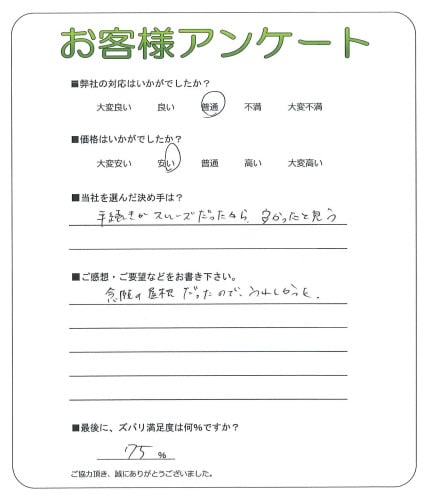 お客様アンケート
■弊社の対応はいかがでしたか？
大変良い 良い 普通 不満 大変不満
■価格はいかがでしたか？
大変安い 安い 普通 高い 大変高い
■当社を選んだ決め手は？
手続きがスムーズだったから、良かったと思う
■ご感想・ご要望などをお書き下さい。
念願の屋根だったので、うれしかった。
■最後に、ズバリ満足度は何%ですか？
75 %
ご協力頂き、誠にありがとうございました。